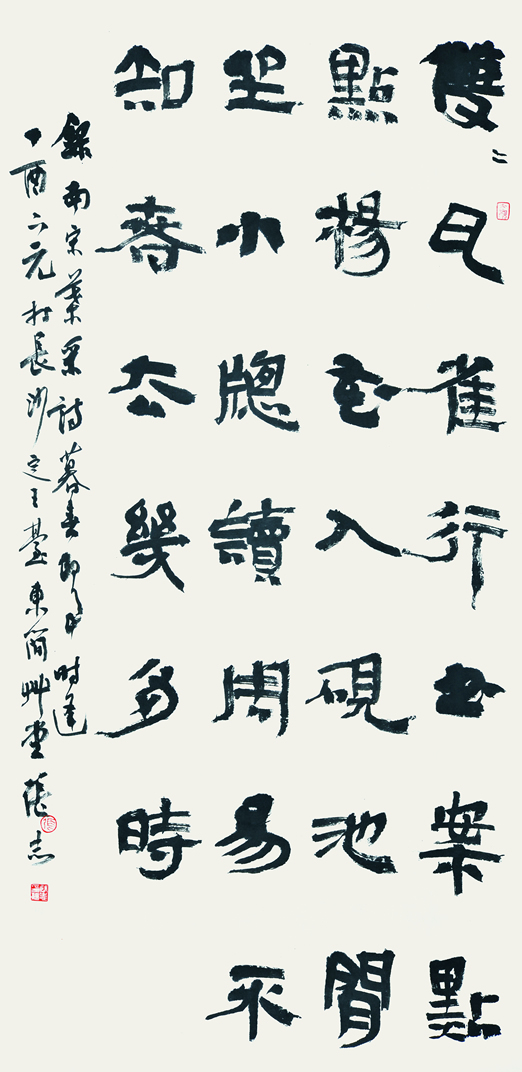 雙〻瓦雀行書案點
點楊花入硯池閒
坐小牕讀周易不
知春去幾多時
錄南宋葉采詩暮春即事時逢
丁酉下元於長沙定王臺東簡艸堂張志